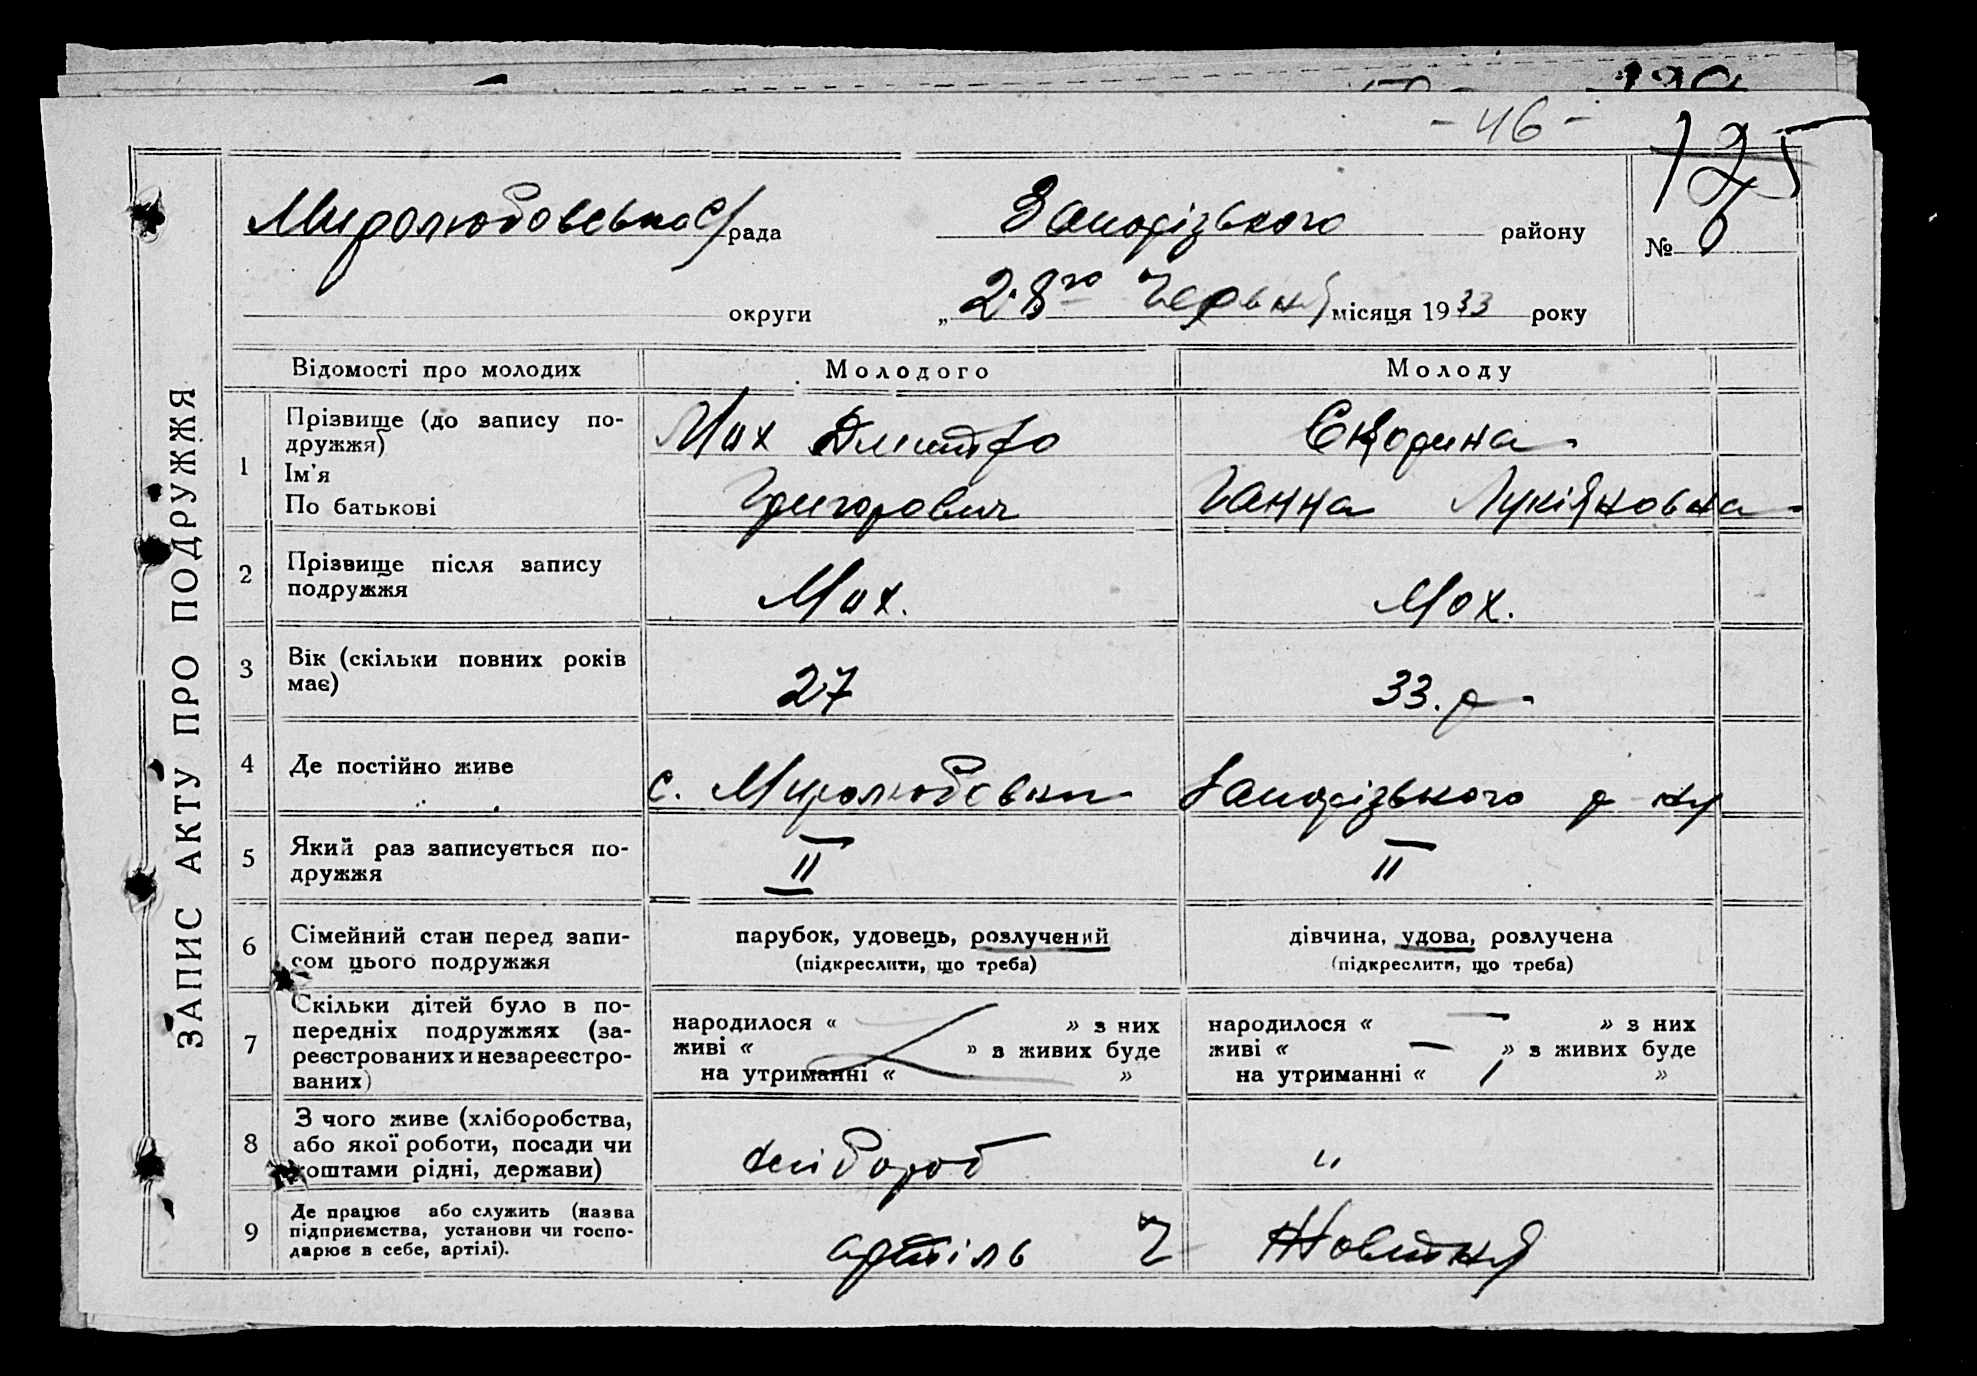 - 46 -
125
ЗАПИС АКТУ ПРО ПОДРУЖЖЯ
Миролюбовська С/рада Запорізького району № 6
округи „28го Червня місяця 1933 року
Відомості про молодих Молодого Молоду
1 Прізвище (до запису по-
дружжя)
Ім'я
По батькові
Мох Дмитро
Григорович
Скорина
Ганна Лукіяновна
2 Прізвище після запису
подружжя
Мох. Мох.
3 Вік (скільки повних років
має)
27 33. р.
4 Де постійно живе
с. Миролюбовки Запорізького р-ну
5 Який раз записується по-
дружжя
II II
6 Сімейний стан перед запи-
сом цього подружжя
парубок, удовець, розлучений
(підкреслити, що треба)
дівчина, удова, розлучена
(підкреслити, що треба)
7 Скільки дітей було в по-
передніх подружжях (за-
реєстрованих и незареєстро-
ваних)
народилося « » з них
живі « » з живих буде
на утриманні « »
народилося « — » з них
живі « — » з живих буде
на утриманні « / »
8 З чого живе (хліборобства,
або якої роботи, посади чи
коштами рідні, держави)
хлібороб "
9 Де працює або служить (назва
підприємства, установи чи госпо-
дарює в себе, артілі).
артіль Жовтня